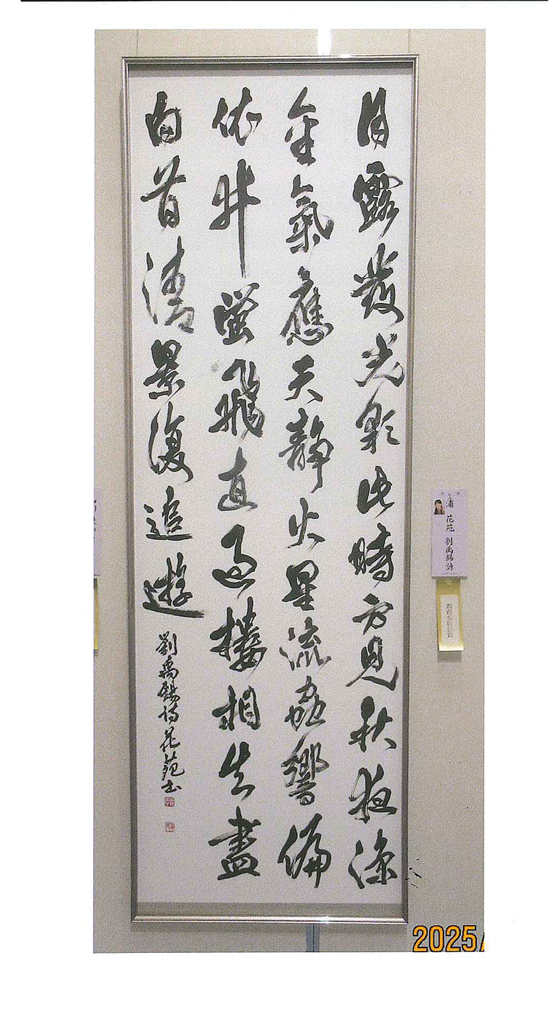 月露發光彩此時方見秋夜涼
金氣應天靜火星流蛩響偏
依井螢飛直過樓相知盡
白首清景復追遊
劉禹錫詩花苑書
花苑 劉禹錫詩
2025